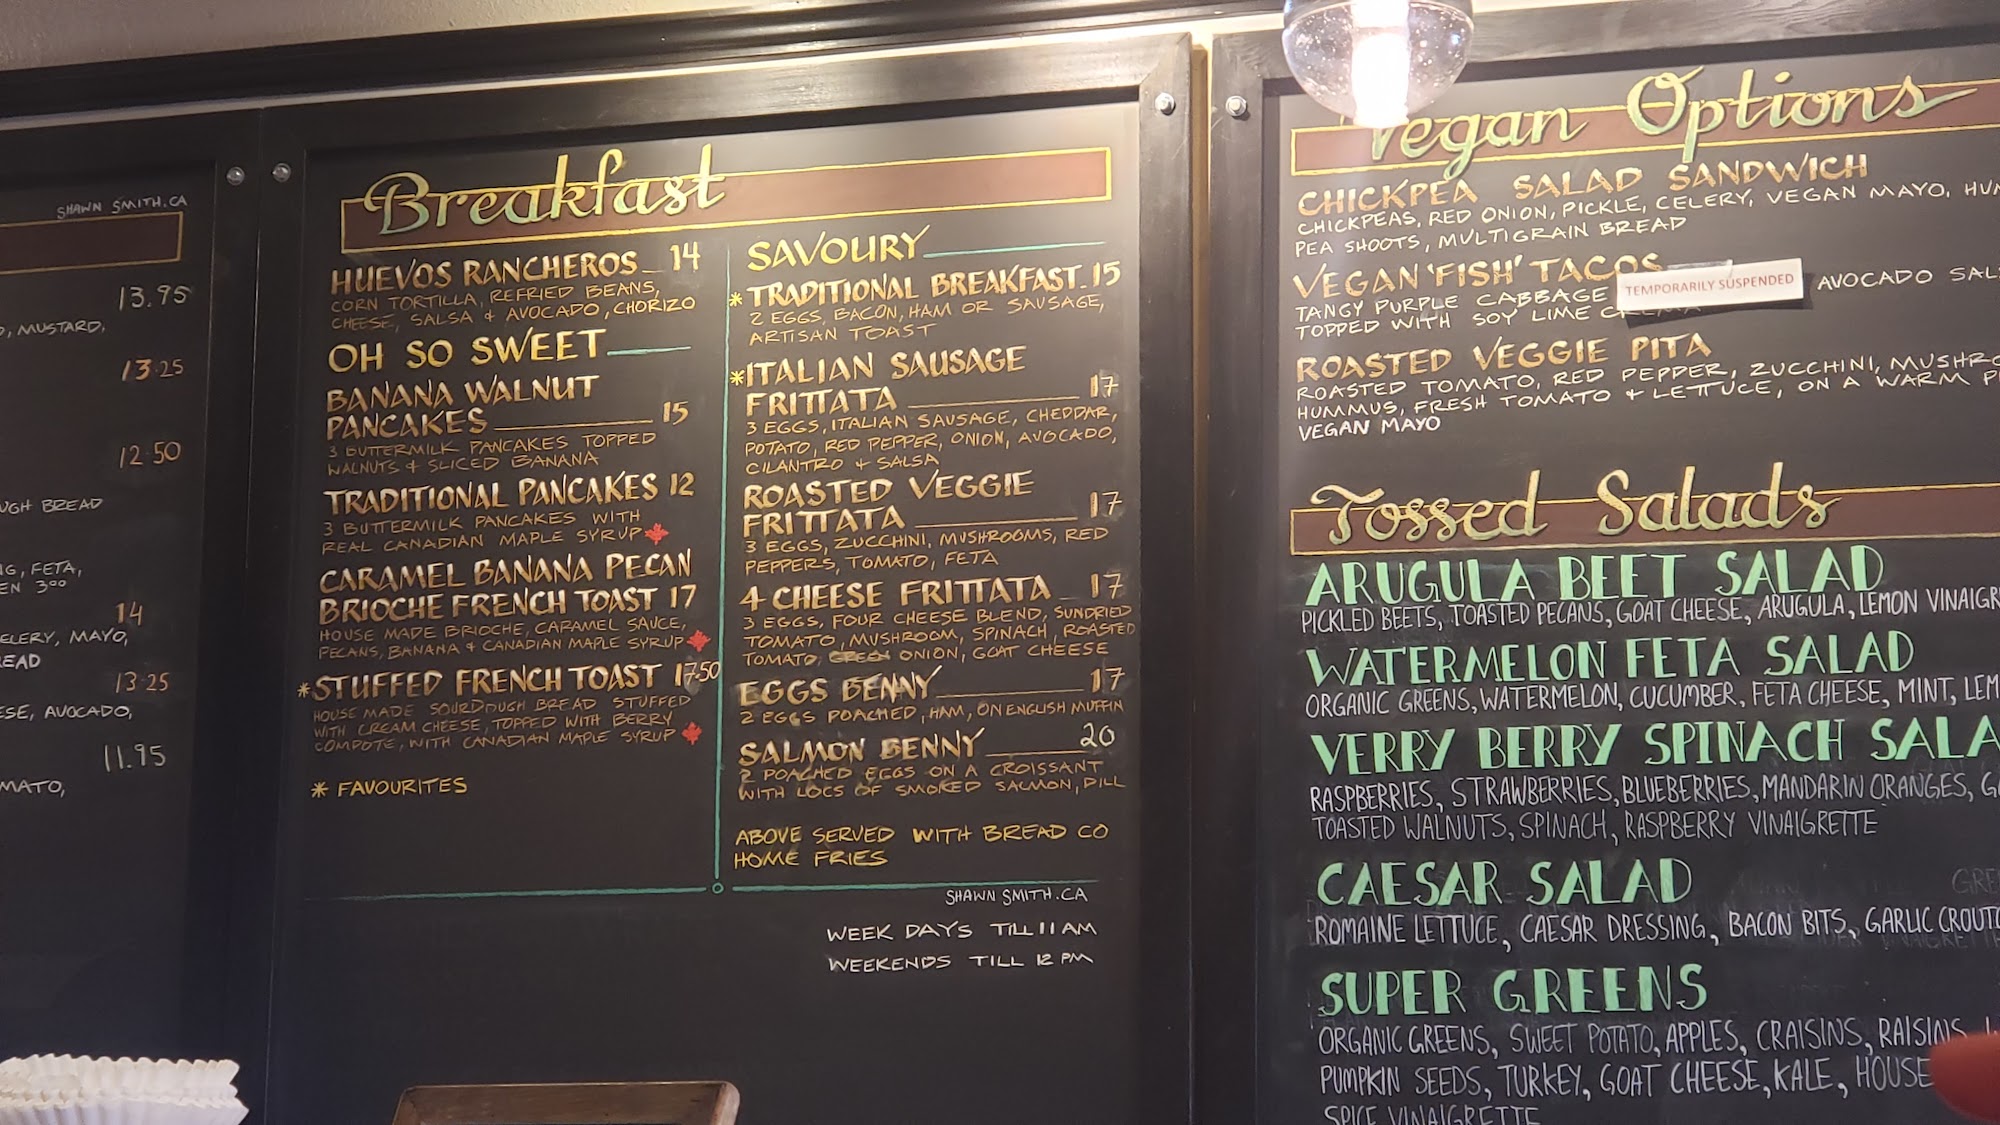 SHAWN SMITH.CA
13.95
MUSTARD,
13.25
12.50
BREAD
FETA,
3⁰⁰
14
MAYO,
13.25
AVOCADO,
11.95
Breakfast
HUEVOS RANCHEROS 14
CORN TORTILLA, REFRIED BEANS,
CHEESE, SALSA & AVOCADO, CHORIZO
OH SO SWEET
BANANA WALNUT
PANCAKES 15
3 BUTTERMILK PANCAKES TOPPED
WALNUTS & SLICED BANANA
TRADITIONAL PANCAKES 12
3 BUTTERMILK PANCAKES WITH
REAL CANADIAN MAPLE SYRUP
CARAMEL BANANA PECAN
BRIOCHE FRENCH TOAST 17
HOUSE MADE BRIOCHE, CARAMEL SAUCE,
PECANS, BANANA & CANADIAN MAPLE SYRUP
*STUFFED FRENCH TOAST 17.50
HOUSE MADE SOURDOUGH BREAD STUFFED
WITH CREAM CHEESE, TOPPED WITH BERRY
COMPOTE, WITH CANADIAN MAPLE SYRUP
* FAVOURITES
SAVOURY
*TRADITIONAL BREAKFAST 15
2 EGGS, BACON, HAM OR SAUSAGE,
ARTISAN TOAST
*ITALIAN SAUSAGE
FRITTATA 17
3 EGGS, ITALIAN SAUSAGE, CHEDDAR,
POTATO, RED PEPPER, ONION, AVOCADO,
CILANTRO & SALSA
ROASTED VEGGIE
FRITTATA 17
3 EGGS, ZUCCHINI, MUSHROOMS, RED
PEPPERS, TOMATO, FETA
4 CHEESE FRITTATA 17
3 EGGS, FOUR CHEESE BLEND, SUNDRIED
TOMATO, MUSHROOM, SPINACH, ROASTED
TOMATO, ONION, GOAT CHEESE
EGGS BENNY 17
2 EGGS POACHED, HAM, ON ENGLISH MUFFIN
SALMON BENNY 20
2 POACHED EGGS ON A CROISSANT
WITH LOCS OF SMOKED SALMON, DILL
ABOVE SERVED WITH BREAD CO
HOME FRIES
SHAWN SMITH.CA
WEEK DAYS TILL 11 AM
WEEKENDS TILL 12 PM
Vegan Options
CHICKPEA SALAD SANDWICH
CHICKPEAS, RED ONION, PICKLE, CELERY, VEGAN MAYO,
PEA SHOOTS, MULTIGRAIN BREAD
VEGAN 'FISH' TACOS
TANGY PURPLE CABBAGE TEMPORARILY SUSPENDED AVOCADO
TOPPED WITH SOY LIME CREMA
ROASTED VEGGIE PITA
ROASTED TOMATO, RED PEPPER, ZUCCHINI,
HUMMUS, FRESH TOMATO & LETTUCE, ON A WARM
VEGAN MAYO
Tossed Salads
ARUGULA BEET SALAD
PICKLED BEETS, TOASTED PECANS, GOAT CHEESE, ARUGULA, LEMON
WATERMELON FETA SALAD
ORGANIC GREENS, WATERMELON, CUCUMBER, FETA CHEESE, MINT,
VERRY BERRY SPINACH
RASPBERRIES, STRAWBERRIES, BLUEBERRIES, MANDARIN ORANGES,
TOASTED WALNUTS, SPINACH, RASPBERRY VINAIGRETTE
CAESAR SALAD
ROMAINE LETTUCE, CAESAR DRESSING, BACON BITS, GARLIC
SUPER GREENS
ORGANIC GREENS, SWEET POTATO, APPLES, CRAISINS, RAISINS
PUMPKIN SEEDS, TURKEY, GOAT CHEESE, KALE, HOUSE
SPICE VINAIGRETTE